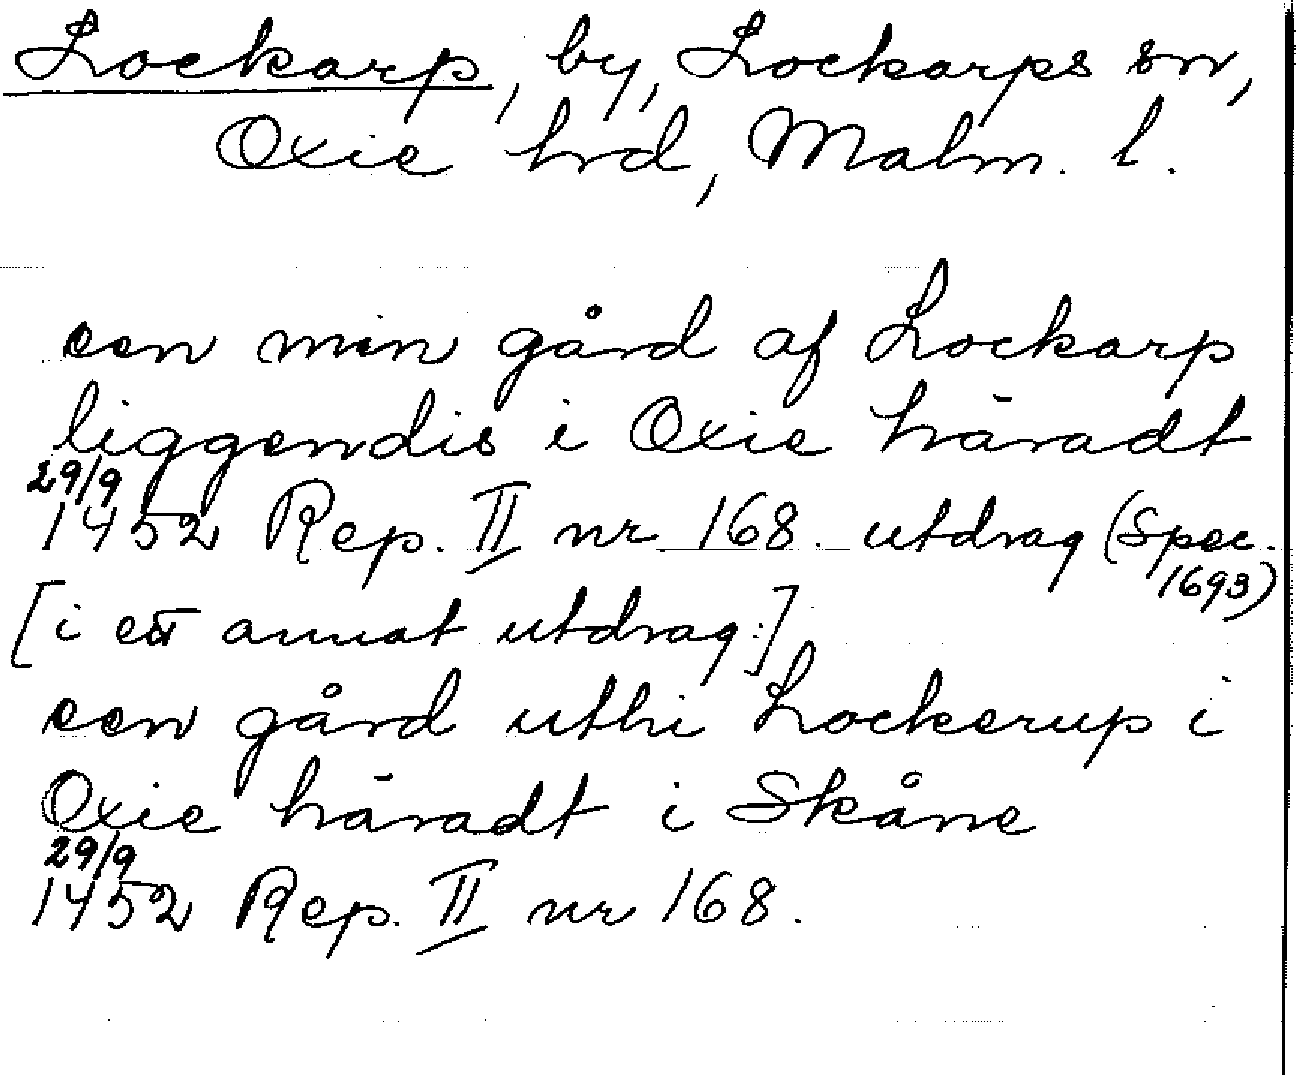 Lockarp, by, Lockarps sn,
Oxie hrd, Malm. l.
een min gård af Lockarp
liggendis i Oxie häradt
29/9
1452 Rep. II nr 168. utdrag (Spec.
1693)
[i ett annat utdrag:]
een gård uthi Lockerup i
Oxie häradt i Skåne
29/9
1452 Rep. II nr 168.